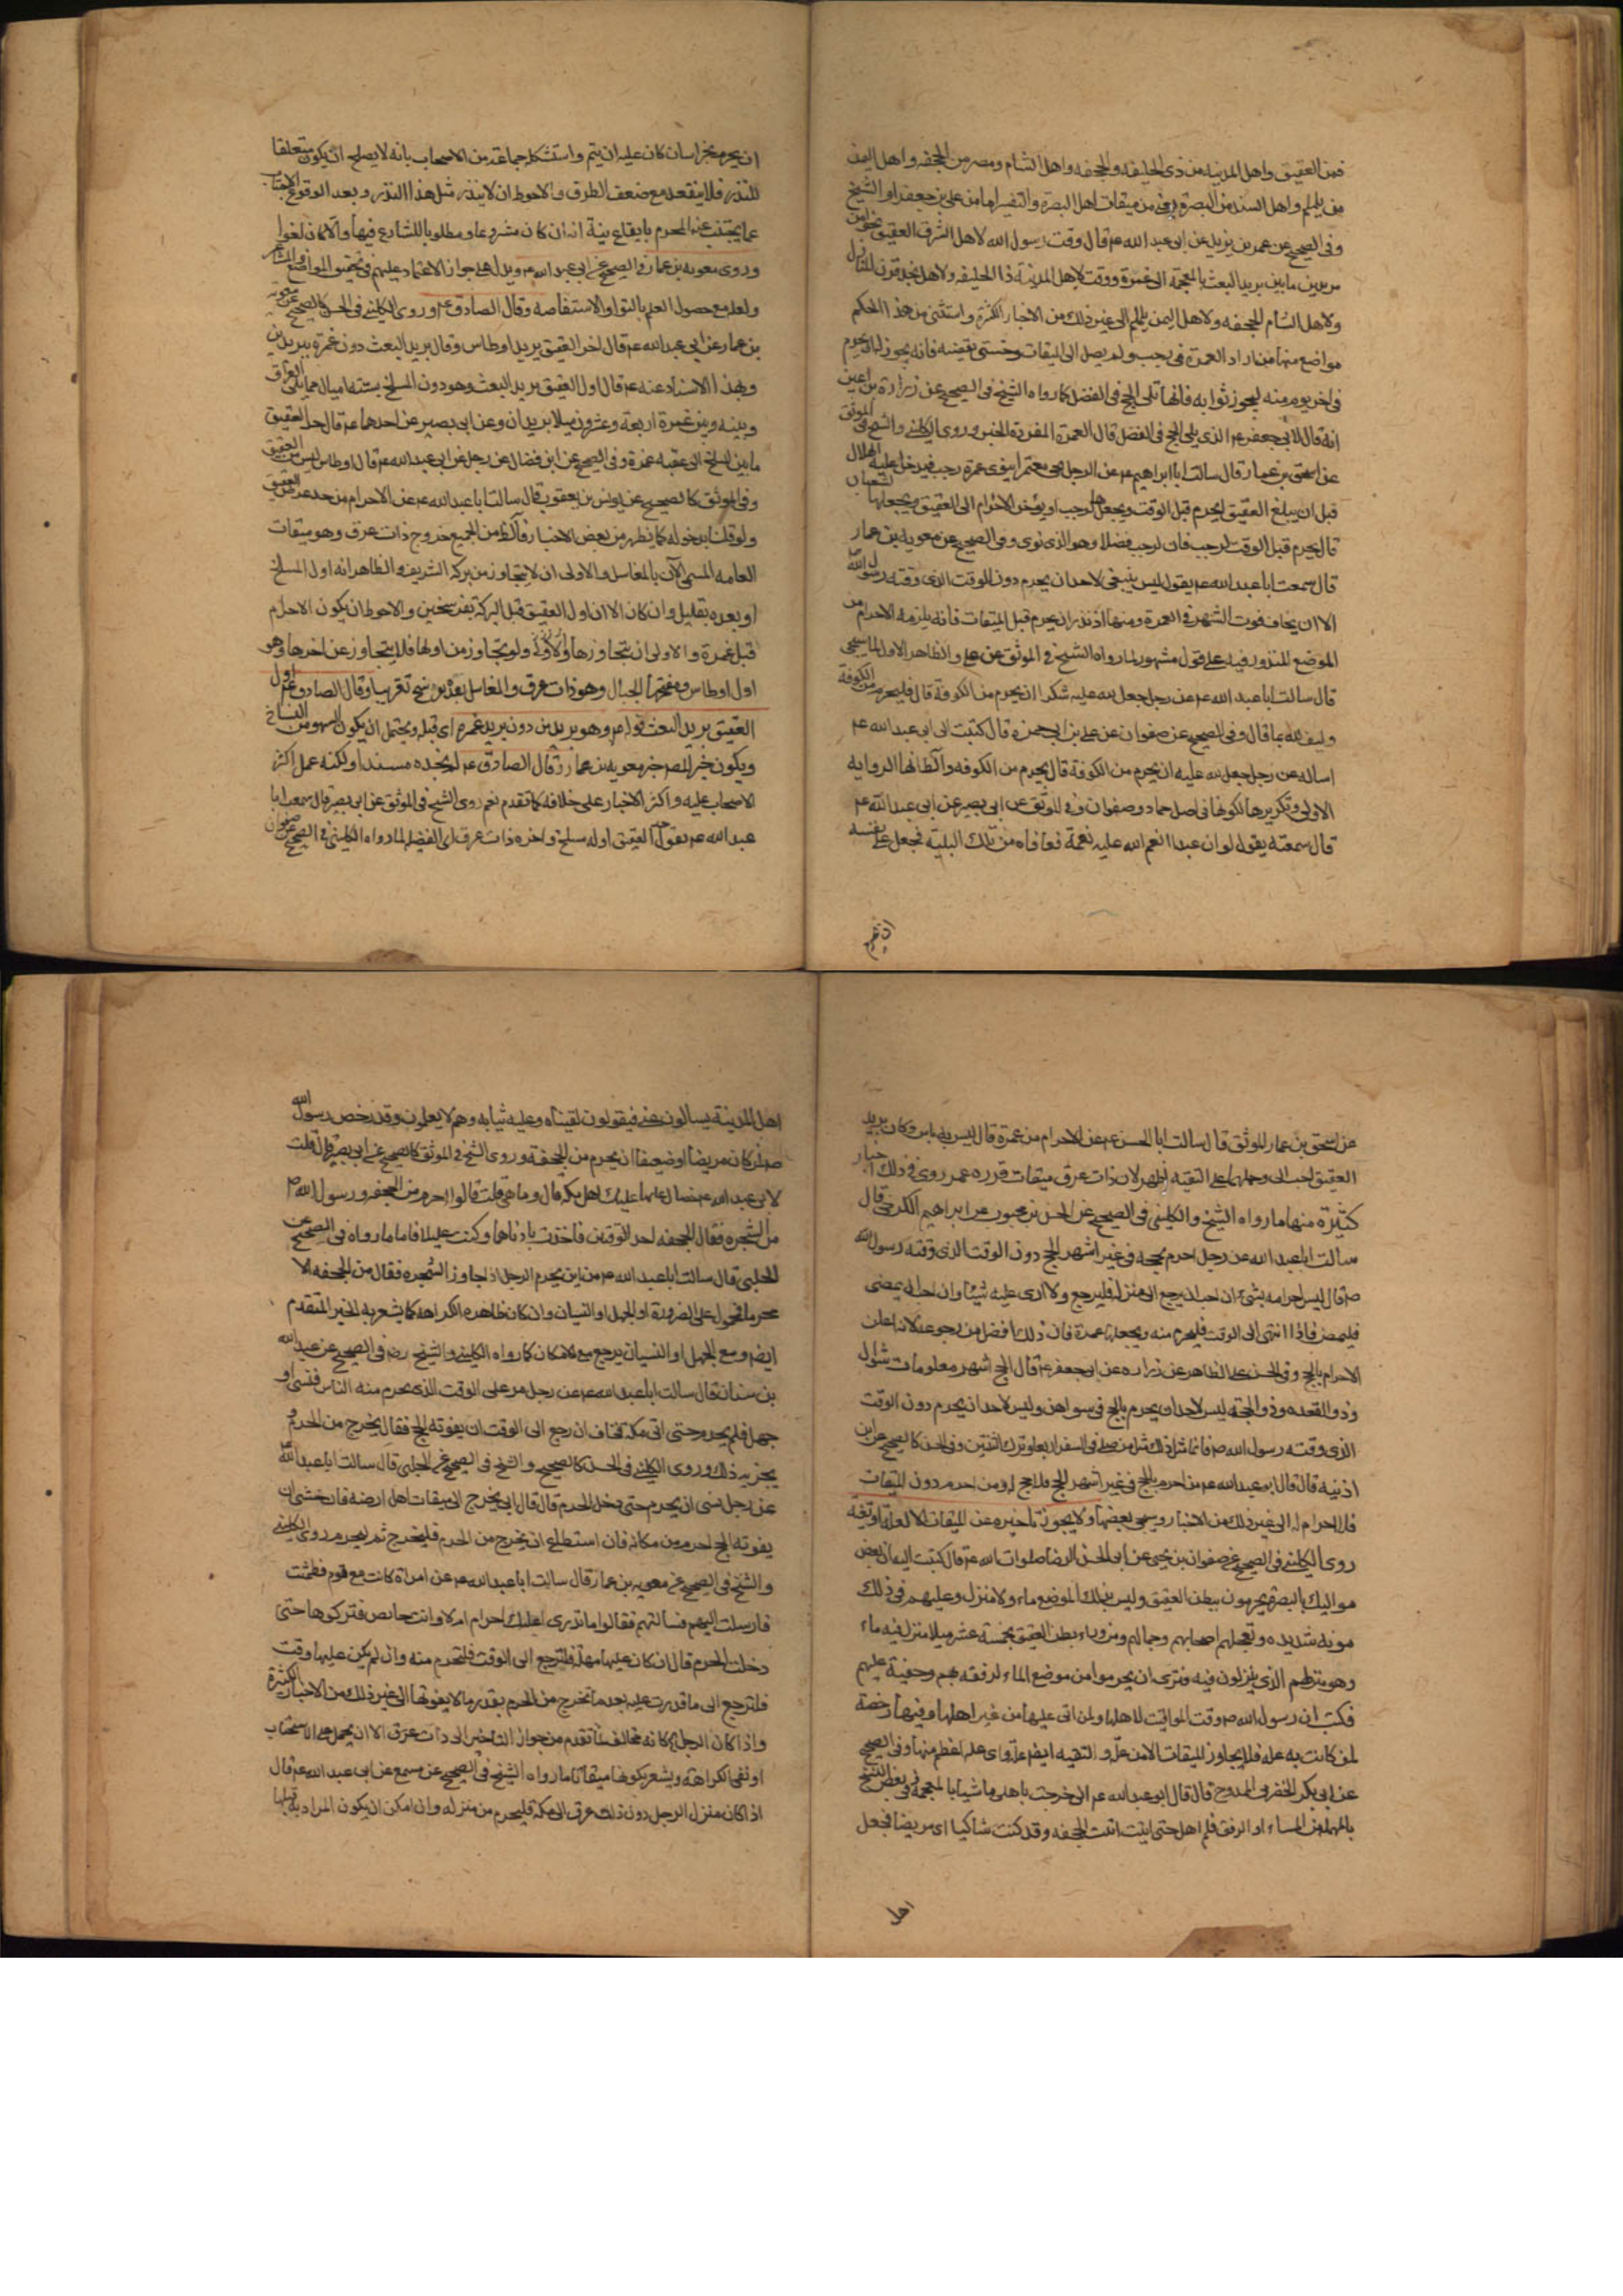 فمن العقيق واهل المدينة من ذى الحليفه والجحفه واهل الشام ومصر من الجحفه واهل اليمن
من يلملم واهل السند من البصرة يعنى من ميقات اهل البصرة والتفسير اما من على بن جعفر او الشيخ
وفى الصحيح عن عمر بن يزيد عن ابى عبد الله ع قال وقت رسول الله لاهل المشرق العقيق نحوا من
بريدين ما بين بريد البعث بالمعجمة الى غمرة ووقت لاهل المدينة ذا الحليفه ولاهل نجد قرن المنازل
ولاهل الشام الجحفه ولاهل اليمن يلملم الى غير ذلك من الاخبار الكثيرة واستثنى من هذا الحكم
مواضع منها من اراد العمرة فى رجب ولم يصل الى الميقات وخشى تقضيه فانه يجوز له ان يحرم
فى اخر يوم منه ليحوز ثوابه فانها تلى الحج فى الفضل كما رواه الشيخ فى الصحيح عن زرارة بن اعين
انه قال لابى جعفر ع الذى يلى الحج فى الفضل قال العمرة المفردة الخبر وروى الكلينى والشيخ فى الموثق
عن اسحق بن عمار قال سالت ابا ابراهيم ع عن الرجل يجئ معتمرا ينوى عمرة رجب فيدخل عليه الهلال
قبل ان يبلغ العقيق ايحرم قبل الوقت ويجعلها لرجب او يؤخر الاحرام الى العقيق ويجعلها لشعبان
قال يحرم قبل الوقت لرجب فان لرجب فضلا وهو الذى نوى وفى الصحيح عن معويه بن عمار
قال سمعت ابا عبد الله ع يقول ليس ينبغى لاحد ان يحرم دون الوقت الذى وقته رسول الله
الا ان يخاف فوت الشهر فى العمرة ومنها اذ نذر ان يحرم قبل الميقات فانه يلزمه الاحرام من
الموضع المنذور فيه على قول مشهور لما رواه الشيخ فى الموثق عن على والظاهر الاول لما سيجى
قال سالت ابا عبد الله ع عن رجل جعل لله عليه شكرا ان يحرم من الكوفة قال فليحرم من الكوفة
وليف لله بما قال وفى الصحيح عن صفوان عن على بن ابى حمزة قال كتبت الى ابى عبد الله ع
اساله عن رجل جعل لله عليه ان يحرم من الكوفة قال يحرم من الكوفه والظاهر انها الروايه
الاولى وتكريرها لكونها فى اصل حماد وصفوان وفى الموثق عن ابى بصير عن ابى عبد الله ع
قال سمعته يقول لو ان عبدا انعم الله عليه نعمة فعافاه من تلك البلية فجعل على نفسه
ان يحرم
ان يحرم بخراسان كان عليه ان يتم واستشكله جماعة من الاصحاب بانه لا يصلح ان يكون متعلقا
للنذر فلا ينعقد مع ضعف الطرق والاحوط ان لا ينذر مثل هذا النذر وبعد الوقوع الاجتناب
عما يجتنب عنه المحرم بايقاع نية انه ان كان مشروعا ومطلوبا للشارع فيها والا كان لغوا
وروى معويه بن عمار فى الصحيح عن ابى عبد الله ع ويدل على جواز الاعتماد عليهم فى تحقيق المواضع والمشاعر
ولعله مع حصول العلم بالتواتر او الاستفاضه وقال الصادق ع وروى الكلينى فى الحسن كالصحيح عن معويه
بن عمار عن ابى عبد الله ع قال اخر العقيق بريد اوطاس وقال بريد البعث دون غمرة ببريدين
وبهذا الاسناد عنه ع قال اول العقيق بريد البعث وهو دون المسلخ بستة اميال مما يلى العراق
وبينه وبين غمرة اربعة وعشرون ميلا بريدان وعن ابى بصير عن احدهما ع قال حد العقيق
ما بين المسلخ الى عقبه غمرة وفى الصحيح عن ابن فضال عن رجل عن ابى عبد الله ع قال اوطاس ليس من العقيق
وفى الموثق كالصحيح عن يونس بن يعقوب قال سالت ابا عبد الله ع عن الاحرام من حد عن العقيق
ولو قلنا بدخوله كما يظهر من بعض الاخبار فالظاهر من الجميع خروج ذات عرق وهو ميقات
العامه المسمى الآن بالمغاسل والاولى ان لا يتجاوز من بركه الشريف والظاهر انه اول المسلخ
او بعده بقليل وان كان الا ان اول العقيق قبل البركة بفرسخين والاحوط ان يكون الاحرام
قبل غمرة والاولى ان يتجاوزها ولو تجاوز من اولها فلا يتجاوز عن اخرها وهو
اول اوطاس ومفتحها الجبال وهو ذات عرق والمغاسل بقدر فرسخ تقريبا وقال الصادق ع اول
العقيق بريد البعث قوله ع وهو بريد من دون بريد غمرة اى قبله ويحتمل ان يكون السهو من النساخ
ويكون خبر المصر خبر معويه بن عمار وقال الصادق ع لم نجده مسندا ولكنه عمل اكثر
الاصحاب عليه واكثر الاخبار على خلافه كما تقدم نعم روى الشيخ فى الموثق عن ابى بصير قال سمعت ابا
عبد الله ع يقول حد العقيق اوله مسلخ واخره ذات عرق اى الفضل لما رواه الكلينى فى الصحيح عن صفوان
عن اسحق بن عمار الموثق قال سالت ابا الحسن ع عن الاحرام من غمرة قال ليس به باس وكان بريد
العقيق احب الى وحملها على التقيه اظهر لان ذات عرق ميقات قرره عمر روى فى ذلك اخبار
كثيرة منها ما رواه الشيخ والكلينى فى الصحيح عن الحسن بن محبوب عن ابراهيم الكرخى قال
سالت ابا عبد الله عن رجل احرم بحجه فى غير اشهر الحج دون الوقت الذى وقته رسول الله
ص قال ليس احرامه بشئ ان احب ان يرجع الى منزله فليرجع ولا ارى عليه شيئا وان احب ان يمضى
فليمض فاذا انتهى الى الوقت فليحرم منه ويجعلها عمرة فان ذلك افضل من رجوعه لانه اعلن
الاحرام بالحج وفى الحسن على الظاهر عن زراره عن ابى جعفر ع قال الحج اشهر معلومات شوال
وذو القعده وذو الحجة ليس لاحد ان يحرم بالحج فى سواهن وليس لاحد ان يحرم دون الوقت
الذى وقته رسول الله ص فانما مثل ذلك مثل من صلى فى السفر اربعا وترك الثنتين وفى الحسن كالصحيح عن ابن
اذنية قال قال ابو عبد الله ع من احرم بالحج فى غير اشهر الحج فلا حج له ومن احرم دون الميقات
فلا احرام له الى غير ذلك من الاخبار وسيجى بعضها ولا يجوز تاخيره عن الميقات الا لعلة او تقيه
روى الكلينى فى الصحيح عن صفوان بن يحيى عن ابى الحسن الرضا صلوات الله ع قال كتبت اليه ان بعض
مواليك بالبصرة يحرمون ببطن العقيق وليس بذلك الموضع ماء ولا منزل وعليهم فى ذلك
مونه شديده ويعجلهم اصحابهم وجمالهم ومن وراء بطن العقيق بخمسة عشر ميلا منزل فيه ماء
وهو منزلهم الذى ينزلون فيه فترى ان يحرموا من موضع الماء لرفقه بهم وخفية عليهم
فكتب ان رسول الله ص وقت المواقيت لاهلها ولمن اتى عليها من غير اهلها وفيها رخصة
لمن كانت به علة فلا يجاوز الميقات الا من علة والتقيه ايضا علة واى علة اعظم منها وفى الصحيح
عن ابى بكر الحضرمى الممدوح قال قال ابو عبد الله ع انى خرجت باهلى ماشيا بالمعجمة وفى بعض النسخ
بالمهملة من المساء او الرفق فلم اهل حتى اتيت الجحفه وقد كنت شاكيا اى مريضا فجعل
اهل
اهل المدينة يسالون عنى فيقولون لقيناه وعليه ثيابه وهم لا يعلمون وقد رخص رسول الله
ص لمن كان مريضا او ضعيفا ان يحرم من الجحفة وروى الشيخ فى الموثق كالصحيح عن ابى بصير قال قلت
لابى عبد الله ع خصال عابها عليك اهل مكه قال وما هى قلت قالوا احرم من الجحفه ورسول الله ص
من الشجره فقال الجحفه احد الوقتين فاخذت بادناهما وكنت عليلا فاما ما رواه فى الصحيح عن
الحلبى قال سالت ابا عبد الله ع من اين يحرم الرجل اذا جاوز الشجره فقال من الجحفه الا
محرما فمحمول على الضرورة او الجهل او النسيان وان كان ظاهره الكراهه كما يشعر به الخبر المتقدم
ايضا ومع الجهل او النسيان يرجع مع الامكان كما رواه الكلينى والشيخ رض فى الصحيح عن عبد الله
بن سنان قال سالت ابا عبد الله ع عن رجل مر على الوقت الذى يحرم منه الناس فنسى او
جهل فلم يحرم حتى اتى مكة فخاف ان رجع الى الوقت ان يفوته الحج فقال يخرج من الحرم و
يجزيه ذلك وروى الكلينى فى الحسن كالصحيح والشيخ فى الصحيح عن الحلبى قال سالت ابا عبد الله
عن رجل نسى ان يحرم حتى دخل الحرم قال قال ابى يخرج الى ميقات اهل ارضه فان خشى ان
يفوته الحج احرم من مكانه فان استطاع ان يخرج من الحرم فليخرج ثم ليحرم روى الكلينى
والشيخ فى الصحيح عن معويه بن عمار قال سالت ابا عبد الله ع عن امراة كانت مع قوم فطمثت
فارسلت اليهم فسالتهم فقالوا ما ندرى اعليك احرام ام لا وانت حائض فتركوها حتى
دخلت الحرم قال ان كان عليها مهلة فلترجع الى الوقت فلتحرم منه وان لم يكن عليها وقت
فلترجع الى ما قدرت عليه بعد ما تخرج من الحرم بقدر ما لا يفوتها الى غير ذلك من الاخبار الكثيرة
واذا كان الرجل كانه مخالف لما تقدم من جواز التاخير الى ذات عرق الا ان يحمل على الاستحباب
او نفى الكراهة ويشعر بكونها ميقاتا ما رواه الشيخ فى الصحيح عن مسمع عن ابى عبد الله ع قال
اذا كان منزل الرجل دون ذات عرق الى مكة فليحرم من منزله وان امكن ان يكون المراد به قبلها